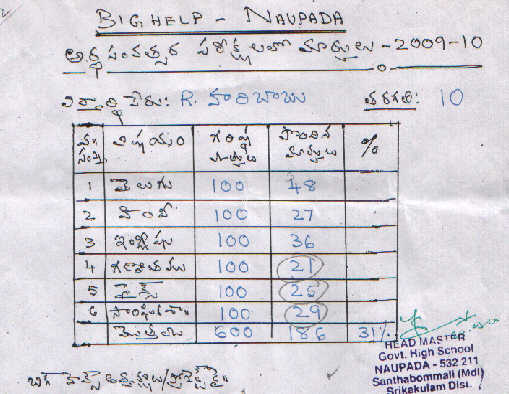 BIG HELP - NAUPADA
అర్ధ సంవత్సర పరీక్షలలో మార్కులు - 2009-10
విద్యార్థి పేరు: R. హరిబాబు తరగతి: 10
విషయం గరిష్ఠ మార్కులు పొందిన మార్కులు %
1 తెలుగు 100 48
2 హిందీ 100 27
3 ఇంగ్లీషు 100 36
4 గణితము 100 21
5 సైన్స్ 100 25
6 సాంఘిక శా 100 29
మొత్తము 600 186 31%
HEAD MASTER
Govt. High School
NAUPADA - 532 211
Santhabommali (Mdl)
Srikakulam Dist.